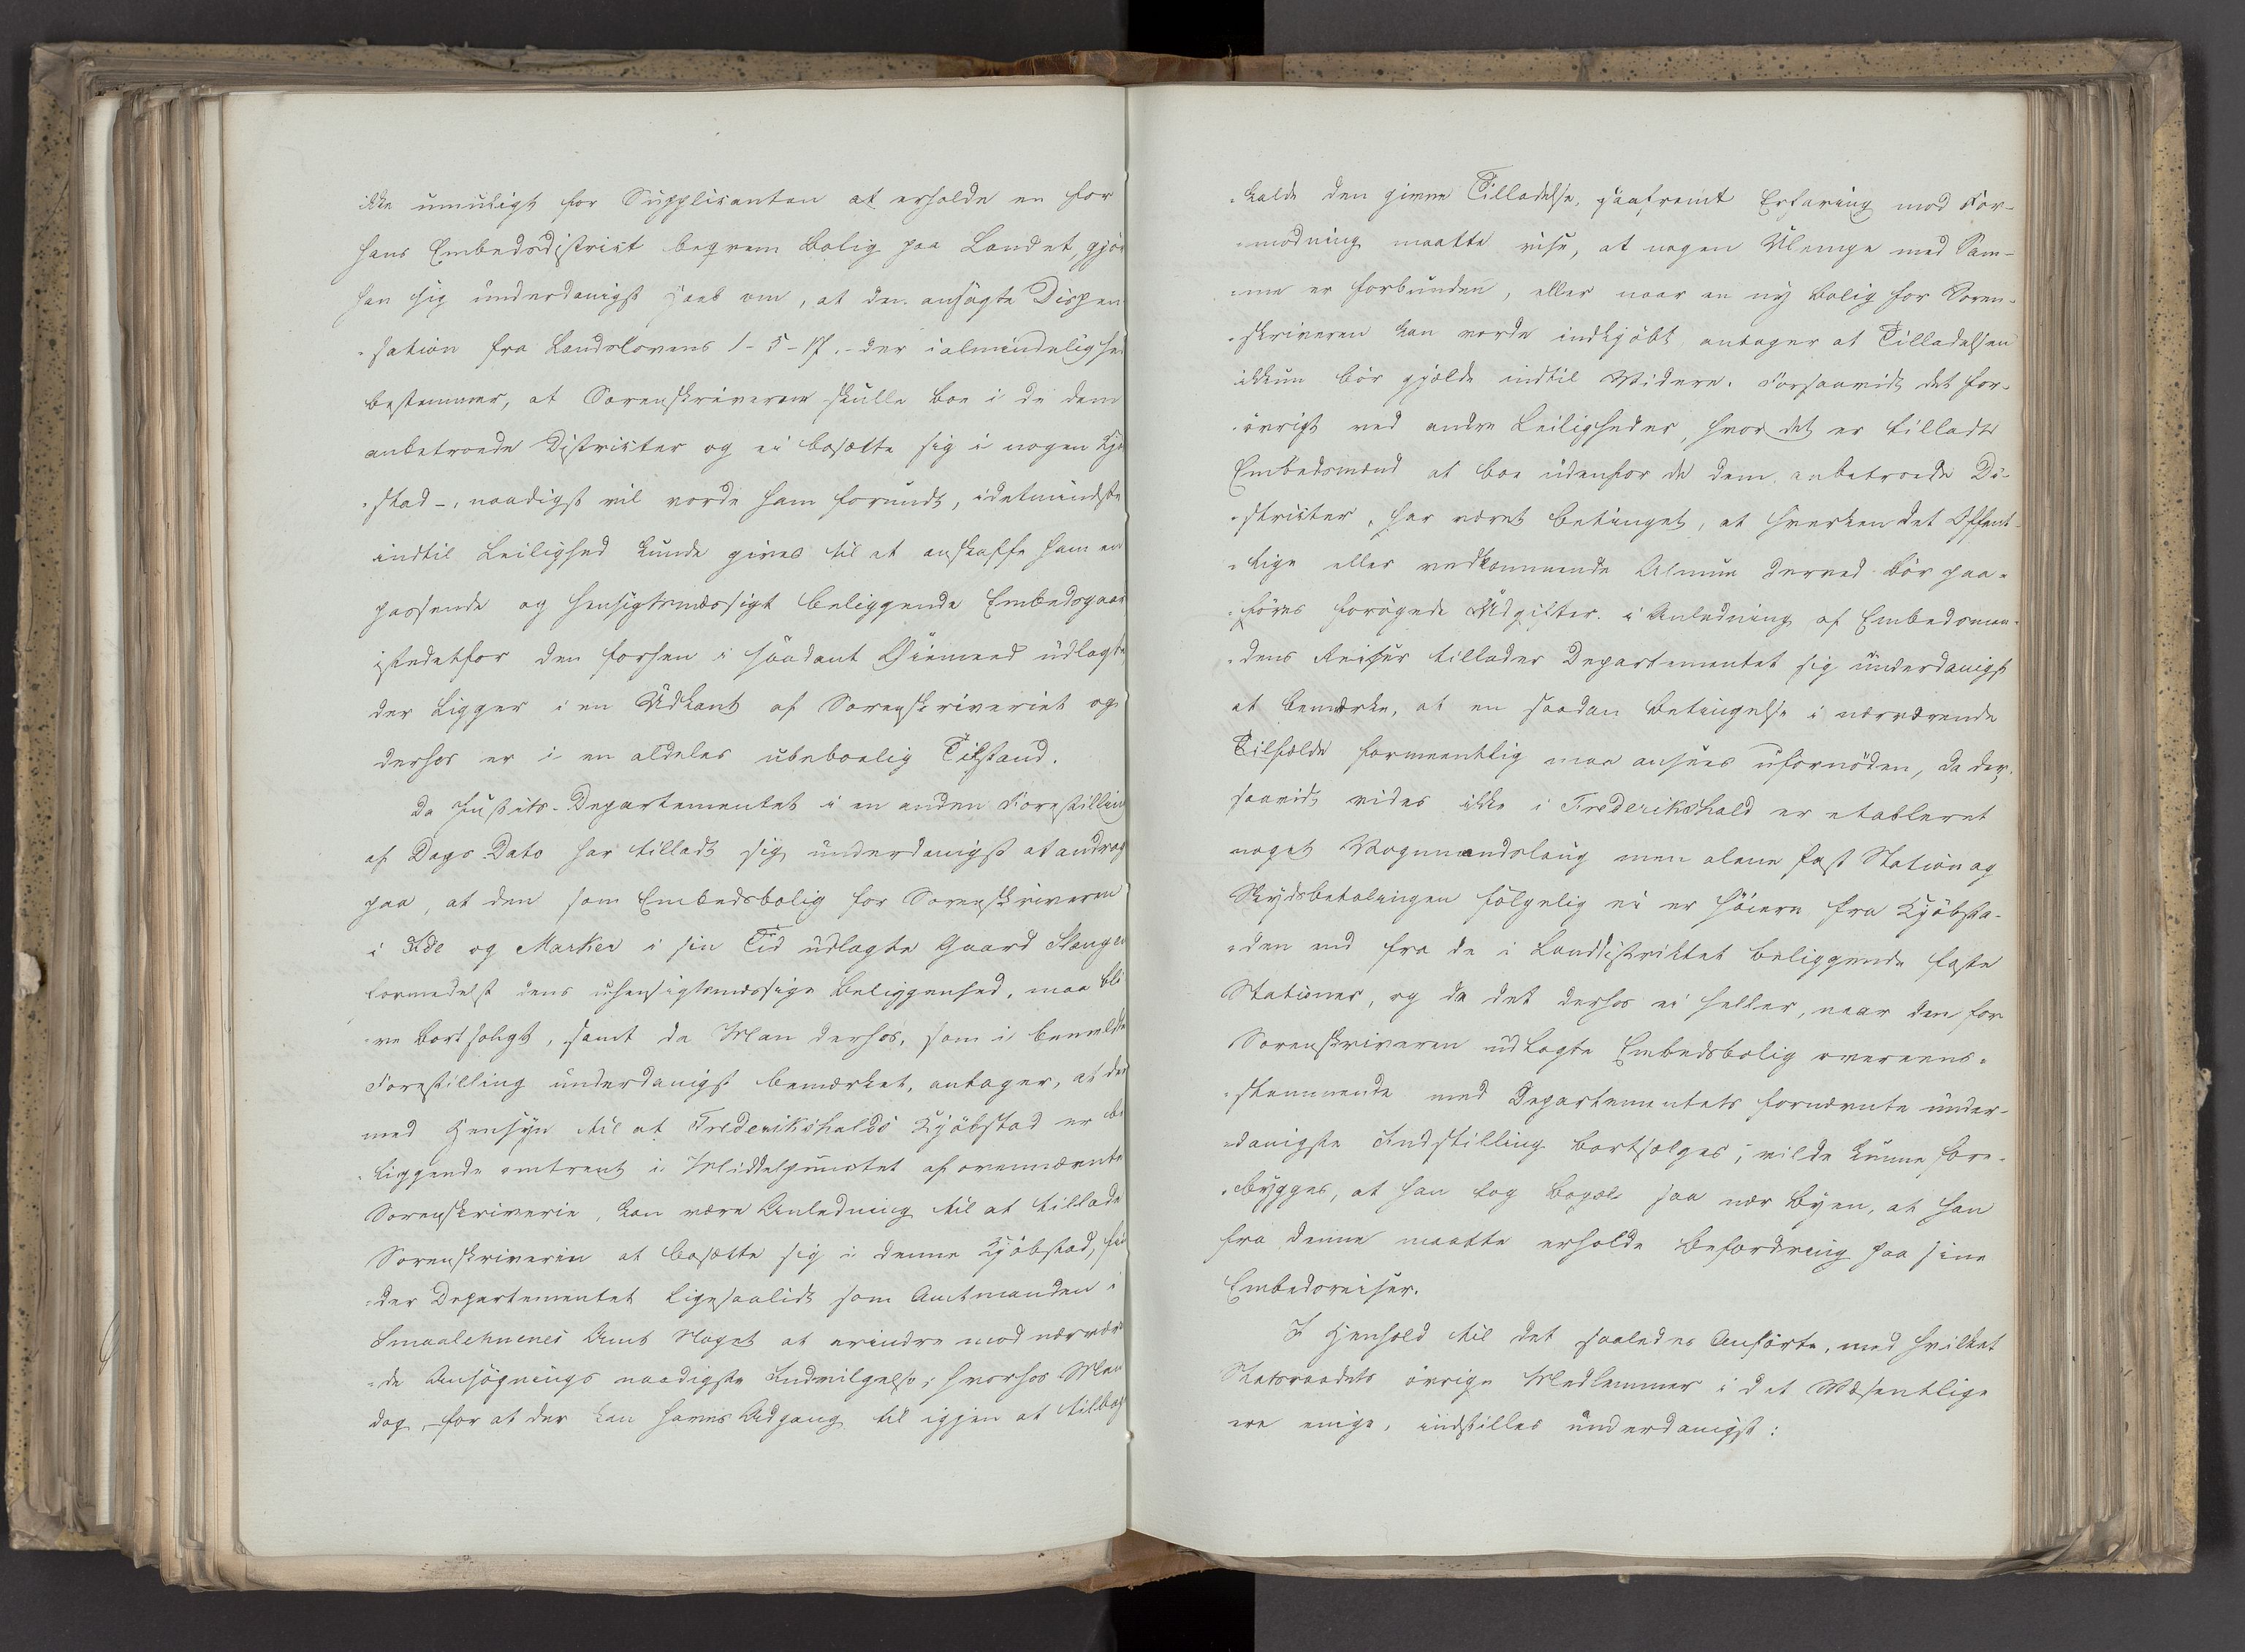 ikke umuligt for Supplikanten at erholde en for
hans Embedsdistrict beqvem Bolig paa Landet, gjør
han sig underdanigst Haab om, at den ansøgte Dispen-
-sation fra Landslovens 1-5-17. - der i almindelighed
bestemmer, at Sorenskriverne skulle boe i de dem
anbetroede Districter og ei bosætte sig i nogen Kjøb
-stad -, naadigst vil vorde ham forundt, idetmindste
indtil Leilighed kunde gives til at anskaffe ham en
passende og hensigtsmæssigt beliggende Embedsgaard
istedetfor den forhen i saadant Øiemeed udlagte,
der ligger i en Udkant af Sorenskriveriet og
derhos er i en aldeles ubeboelig Tilstand.
Da Justits-Departementet i en anden Forestilling
af Dags Dato har tilladt sig underdanigst at andrage
paa, at den som Embedsbolig for Sorenskriveren
i Idde og Marker i sin Tid udlagte Gaard Stange
formedelst dens uhensigtsmæssige Beliggenhed, maa bli
-ve bortsolgt, samt da Man derhos, som i bemeldte
Forestilling underdanigst bemærket, antager, at der
med Hensyn til at Frederikshalds Kjöbstad er be
-liggende omtrent i Middelpunctet af ovennævnte
Sorenskriverie, kan være Anledning til at tillade
Sorenskriveren at bosætte sig i denne Kjöbstad, fin
-der Departementet ligesaalidt som Amtmanden i
Smaalehnenes Amt Noget at erindre mod nærværen
-de Ansøgnings naadigste Indvilgelse; hvorhos Man
dog, for at der kan haves Adgang til igjen at tilbage
-kalde den givne Tilladelse, saafremt Erfaring mod For-
-modning maatte vise, at nogen Ulempe med Sam-
-me er forbunden, eller naar en ny Bolig for Soren-
-skriveren kan vorde indkjöbt, antager at Tilladelsen
ikkun bör gjælde indtil Videre. Forsaavidt det for-
-övrigt ved andre Leiligheder, hvor det er tilladt
Embedsmænd at boe udenfor de dem anbetroede Di-
-stricter, har været betinget, at hverken det Offent-
-lige eller vedkommende Almue derved bör paa-
-föres forögede Udgifter i Anledning af Embedsmæn-
-dens Reiser tillader Departementet sig underdanigst
at bemærke, at en saadan Betingelse i nærværende
Tilfælde formeentlig maa ansees ufornöden, da der,
saavidt vides ikke i Frederikshald er etableret
noget Vognmandslaug men alene fast Station og
Skydsbetalingen fölgelig ei er höiere fra Kjöbsta-
-den end fra de i Landdistriktet beliggende faste
Stationer, og da det derhos ei heller, naar den for
Sorenskriveren udlagte Embedsbolig overeens-
-stemmende med Departementets fornævnte under-
-danigste Indstilling bortsælges, vilde kunne fore-
-bygges, at han tog Bopæl saa nær Byen, at han
fra denne maatte erholde Befordring paa sine
Embedsreiser.
I Henhold til det saaledes Anförte, med hvilket
Statsraadets övrige Medlemmer i det Væsentlige
ere enige, indstilles underdanigst: